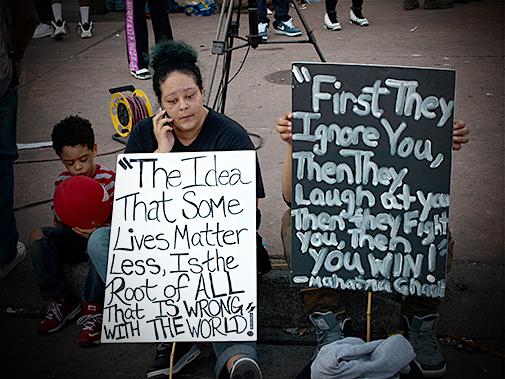 "The Idea
That Some
Lives Matter
Less, Is the
Root of ALL
That IS WRONG"
WITH THE WORLD
"First They
Ignore You,
Then They
Laugh at you
Then They Fight
You, Then
YOU WIN!"
- Mahatma Ghandi